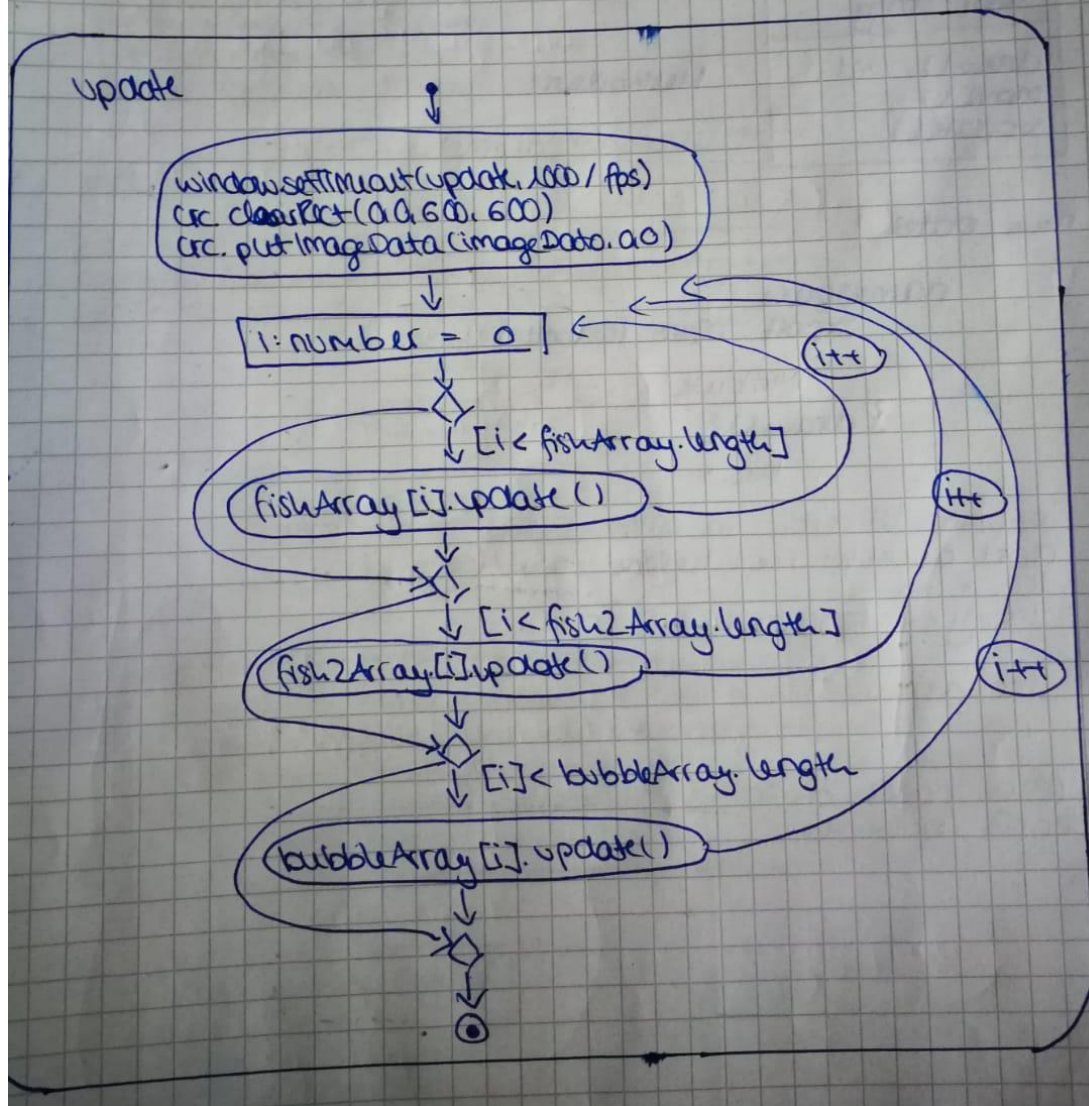 update
window.setTimeout(update, 1000 / fps)
crc.clearRect(0,0,600,600)
crc.putImageData(imageData,0,0)
i:number = 0
i++
[i< fishArray.length]
fishArray[i].update()
i++
[i< fish2Array.length]
fish2Array.[i].update()
i++
[i]< bubbleArray.length
bubbleArray[i].update()